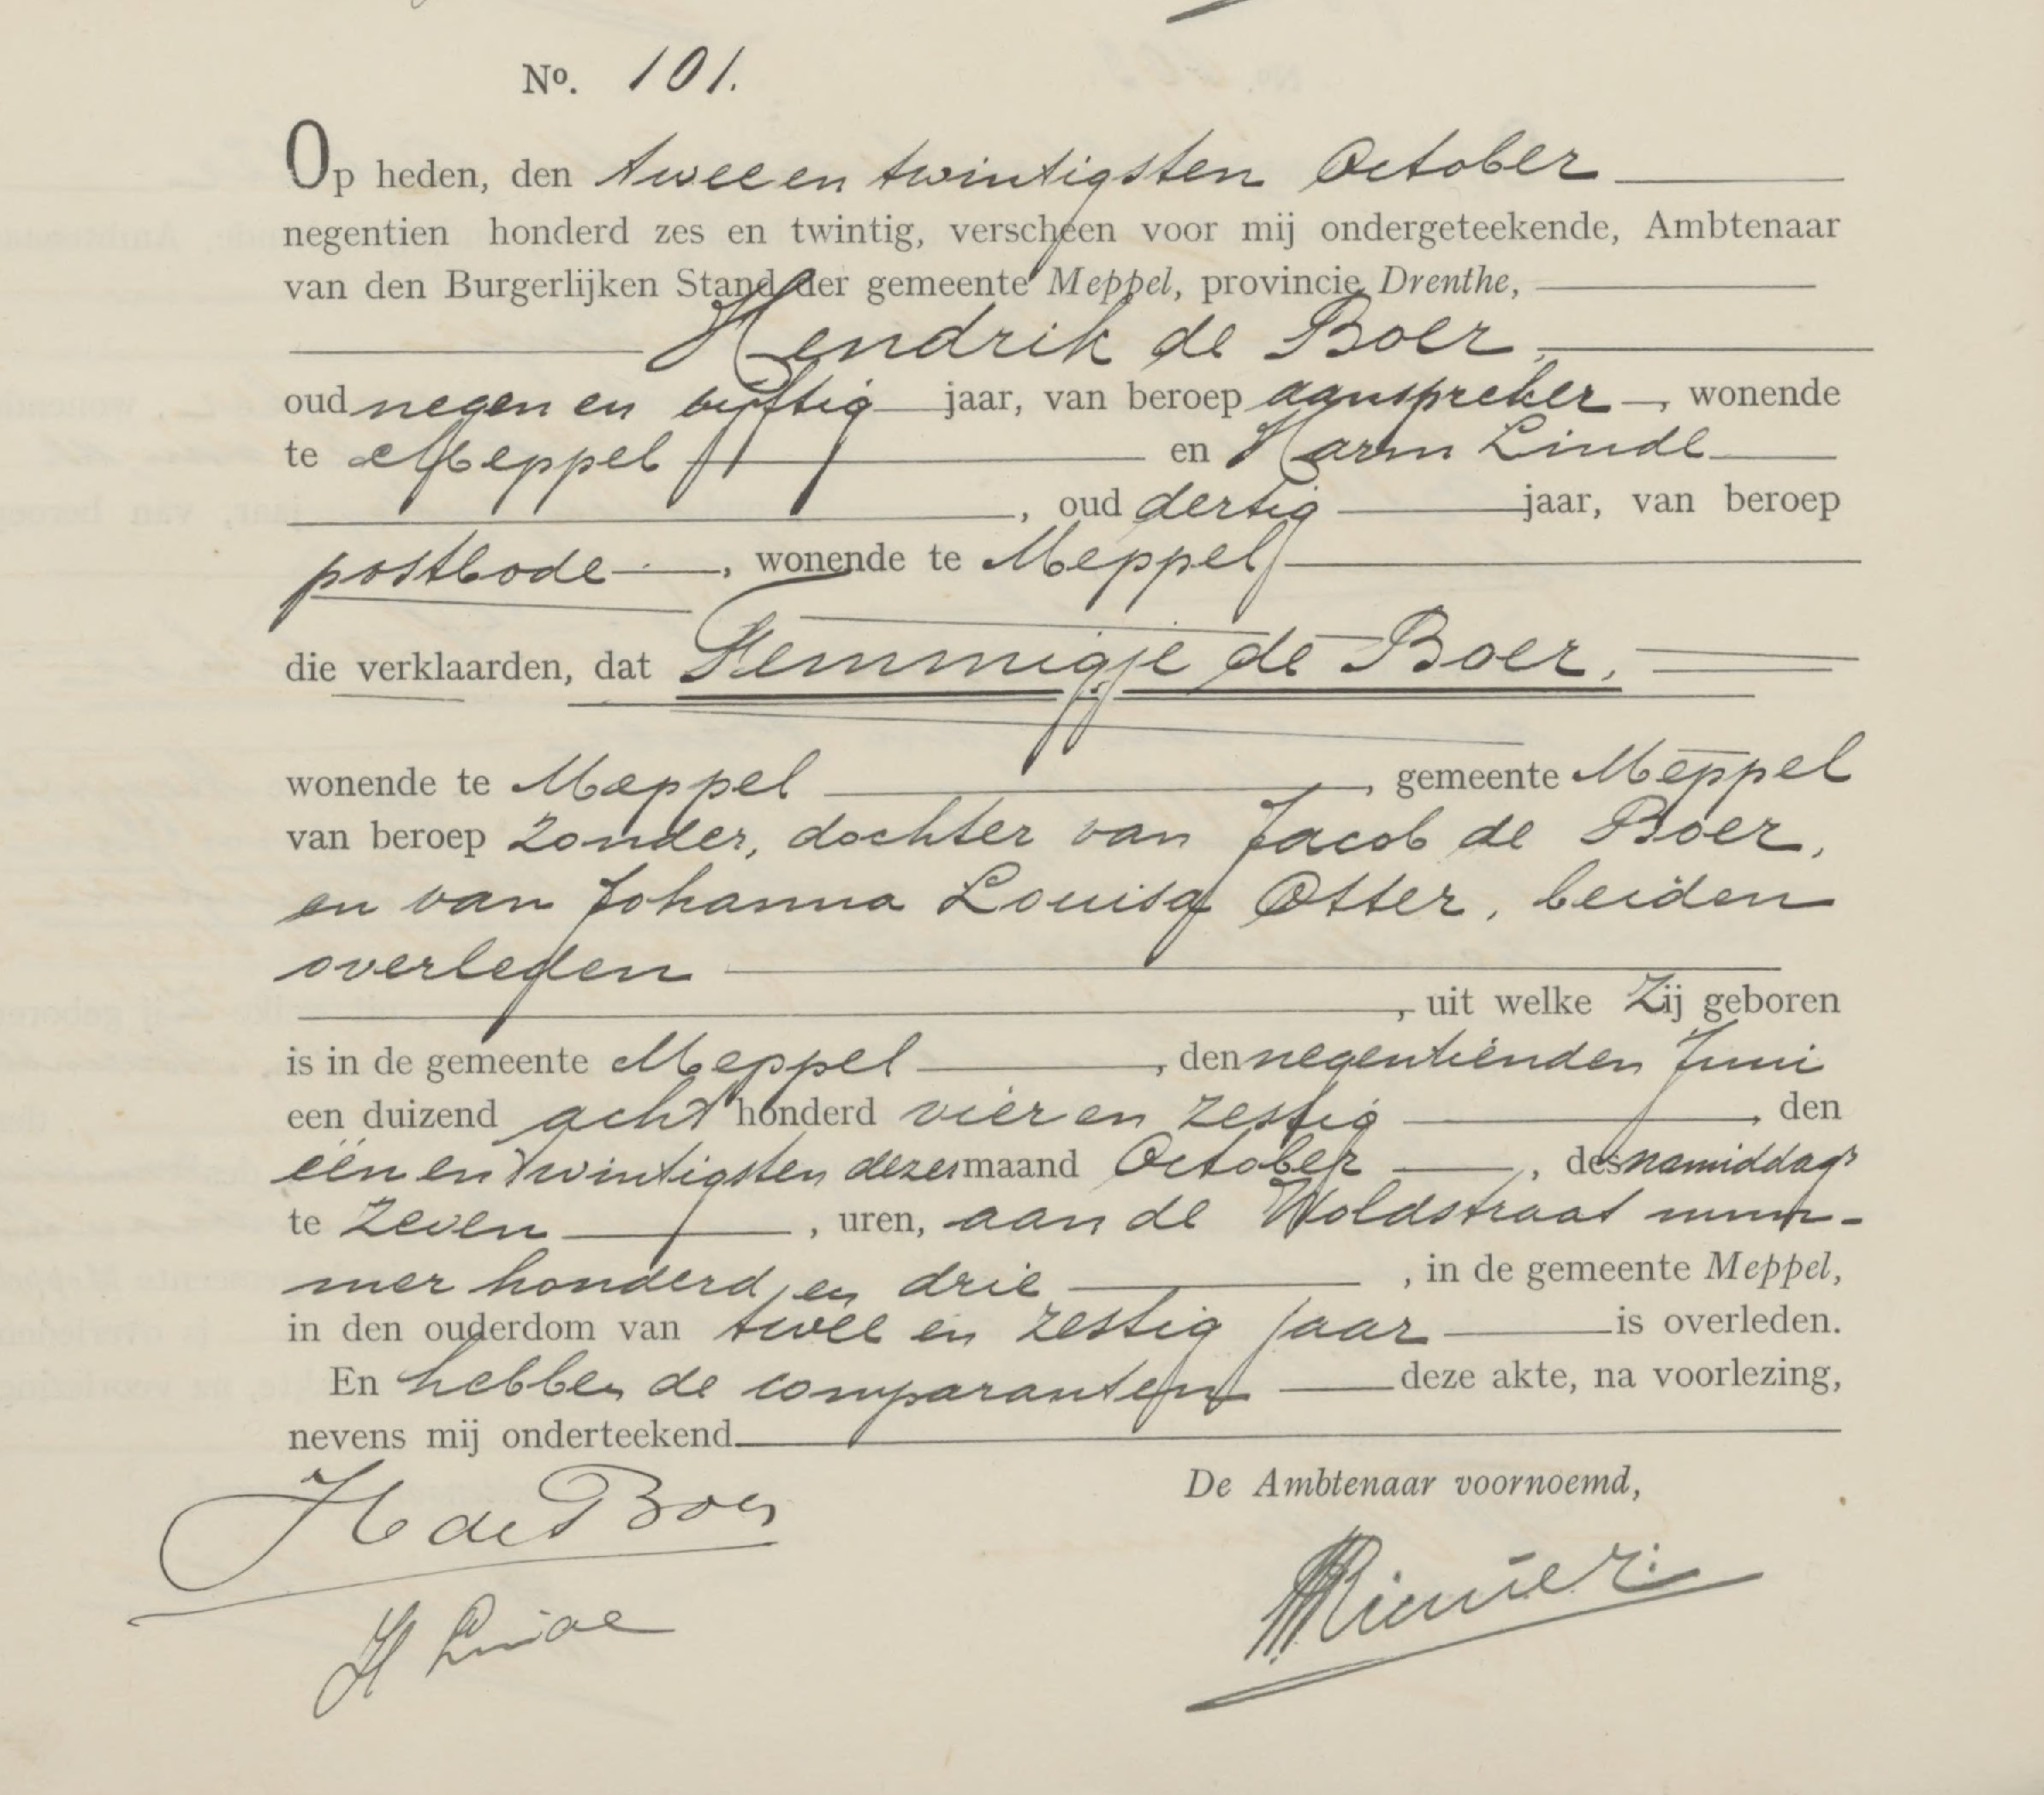 No. 101.
Op heden, den twee en twintigsten October
negentien honderd zes en twintig, verscheen voor mij ondergeteekende, Ambtenaar
van den Burgerlijken Stand der gemeente Meppel, provincie Drenthe,
Hendrik de Boer,
oud negen en vijftig jaar, van beroep aanspreker, wonende
te Meppel en Harm Linde
, oud dertig jaar, van beroep
postbode, wonende te Meppel
die verklaarden, dat Femmigje de Boer,
wonende te Meppel, gemeente Meppel
van beroep zonder, dochter van Jacob de Boer,
en van Johanna Louisa Otter, beiden
overleden
, uit welke Zij geboren
is in de gemeente Meppel, den negentienden Juni
een duizend acht honderd vier en zestig, den
één en twintigsten dezer maand October, des namiddags
te zeven, uren, aan de Woldstraat num-
mer honderd en drie, in de gemeente Meppel,
in den ouderdom van twee en zestig jaar is overleden.
En hebben de comparanten deze akte, na voorlezing,
nevens mij onderteekend.
De Ambtenaar voornoemd,
H de Boer
H Linde